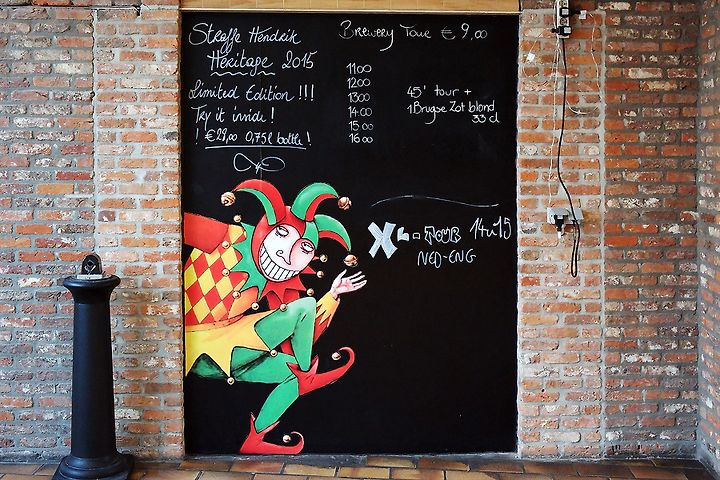 Straffe Hendrik
Héritage 2015
Limited Edition !!!
Try it inside !
! €29,00 0,75l bottle !
Brewery Tour € 9,00
11 00
12 00
13 00
14.00
15.00
16.00
45' tour +
1 Brugse Zot blond
33 cl
XL-TOUR 14u15
NED-ENG